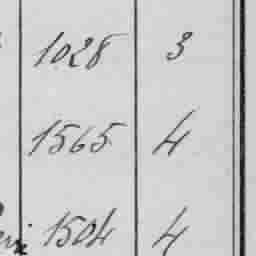 1028 3
1565 4
1504 4